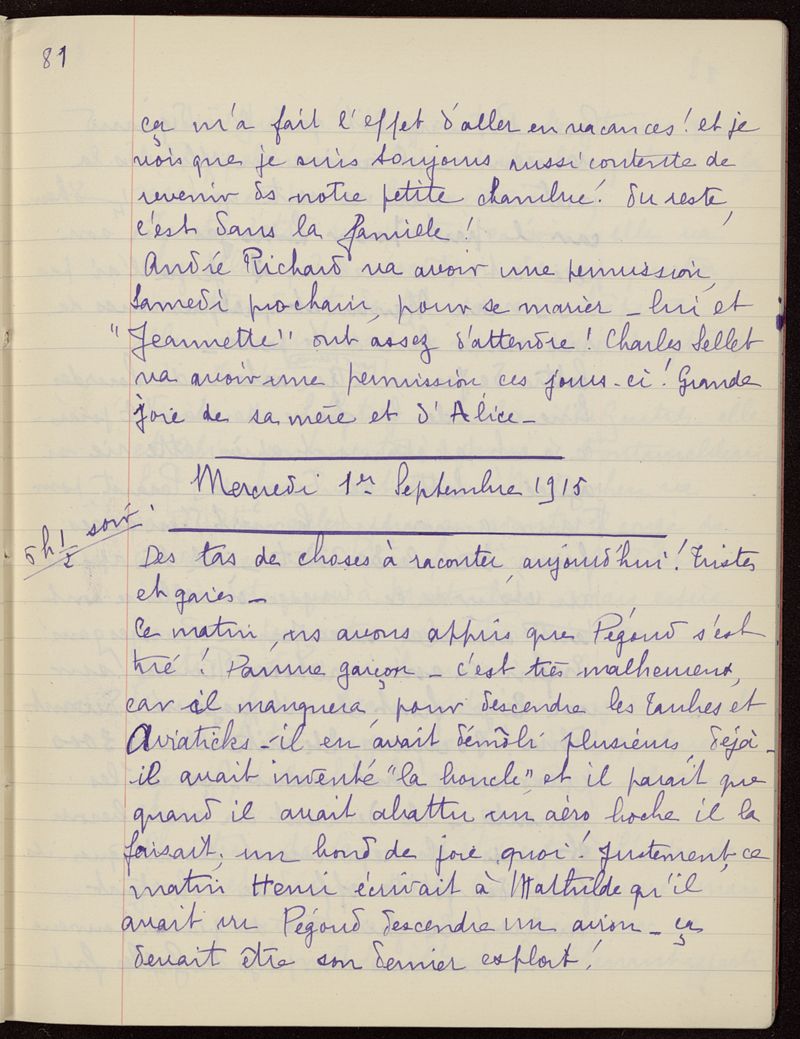 81
ça m'a fait l'effet d'aller en vacances! et je
vois que je suis toujours aussi contente de
revenir ds notre petite chambre! du reste,
c'est dans la famille!
André Richard va avoir une permission,
Samedi prochain, pour se marier - lui et
"Jeannette" ont assez d'attendre! Charles Sellet
va avoir une permission ces jours-ci! Grande
joie de sa mère et d'Alice -
Mercredi 1er Septembre 1915
5h 1/2 soir.
Des tas de choses à raconter, aujourd'hui! Tristes
et gaies -
Ce matin, ns avons appris que Pégoud s'est
tué! Pauvre garçon - c'est très malheureux,
car il manquera, pour descendre les Taubes et
Aviaticks - il en avait démoli plusieurs, déjà -
il avait inventé "la boucle", et il paraît que
quand il avait abattu un aéro boche il la
faisait; un bond de joie, quoi! Justement, ce
matin Henri écrivait à Mathilde qu'il
avait vu Pégoud descendre un avion - ça
devait être son dernier exploit!